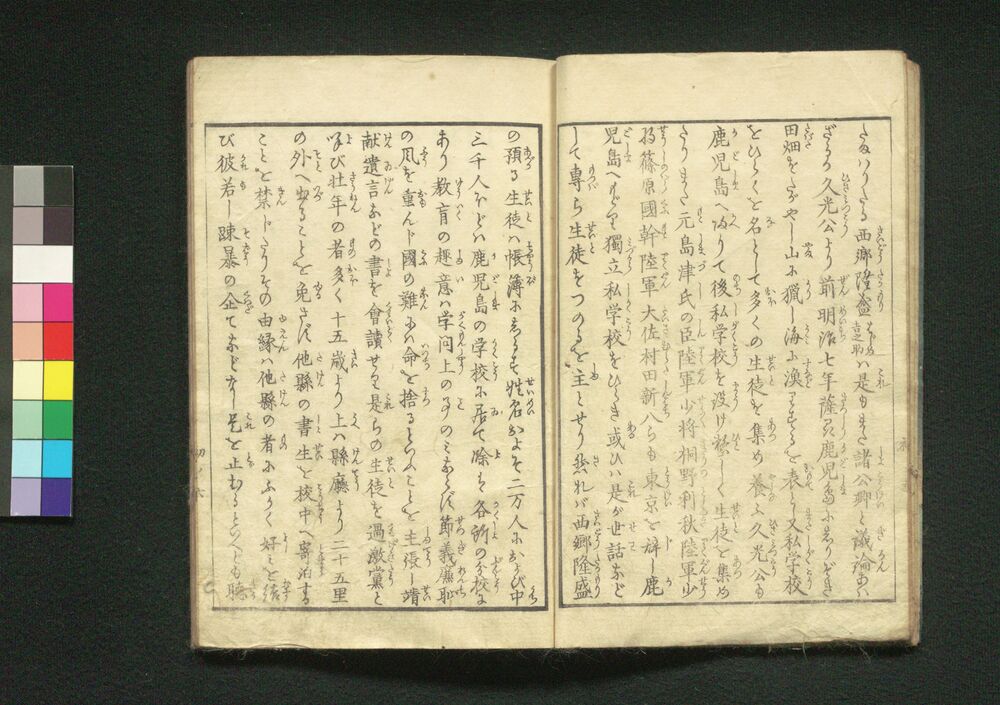 たがひたる西郷隆盛吉之助ハ是もまた諸公卿と議論あハ
ざるか久光公より前明治七年薩州鹿児島にしりぞき
田畑をたがやし山に猟し海に漁りするを表とし又私学校
をひらくを名として多くの生徒を集め養ふ久光公も
鹿児島へ帰りて後私学校を設け新しく生徒を集め
たりまた元島津氏の臣陸軍少将桐野利秋陸軍少
将篠原國幹陸軍大佐村田新八らも東京を辞し鹿
児島へもどり獨立私学校をひらき或ひハ是が世話など
して専ら生徒をつのるを主とせり然れバ西郷隆盛
の預る生徒ハ帳簿にしるす姓名およそ二万人におよび中
三千人ほどハ鹿児島の学校に居て餘ハ各所の分校に
あり教育の趣意ハ学問上の事のミならず節義廉恥
の風を重んじ國の難にハ命を捨るといふことを主張し靖
献遺言などの書を會讀せり是らの生徒を過激黨と
呼び壮年の者多く十五歳より上ハ縣廳より二十五里
の外へ出ることを免さず他縣の書生を校中へ寄泊する
ことを禁じたりその由縁ハ他縣の者にふかく好ミを結
び彼若し疎暴の企てなどなし是を止むるといへども聴